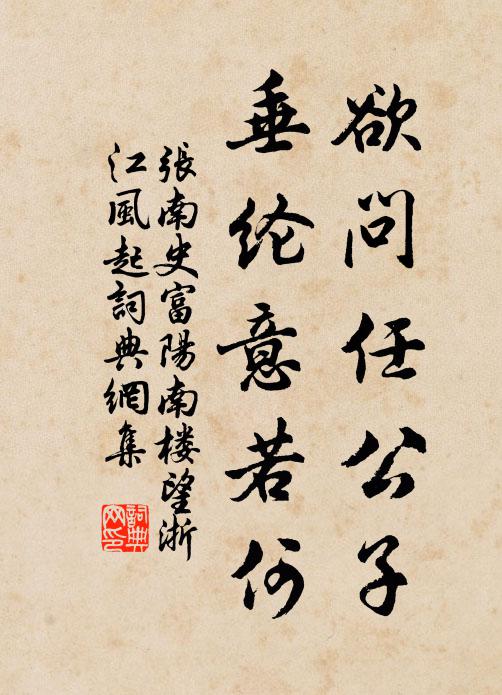 欲问任公子
垂纶意若何
張南史富陽南楼望浙
江風起詞典網集
詞典网印